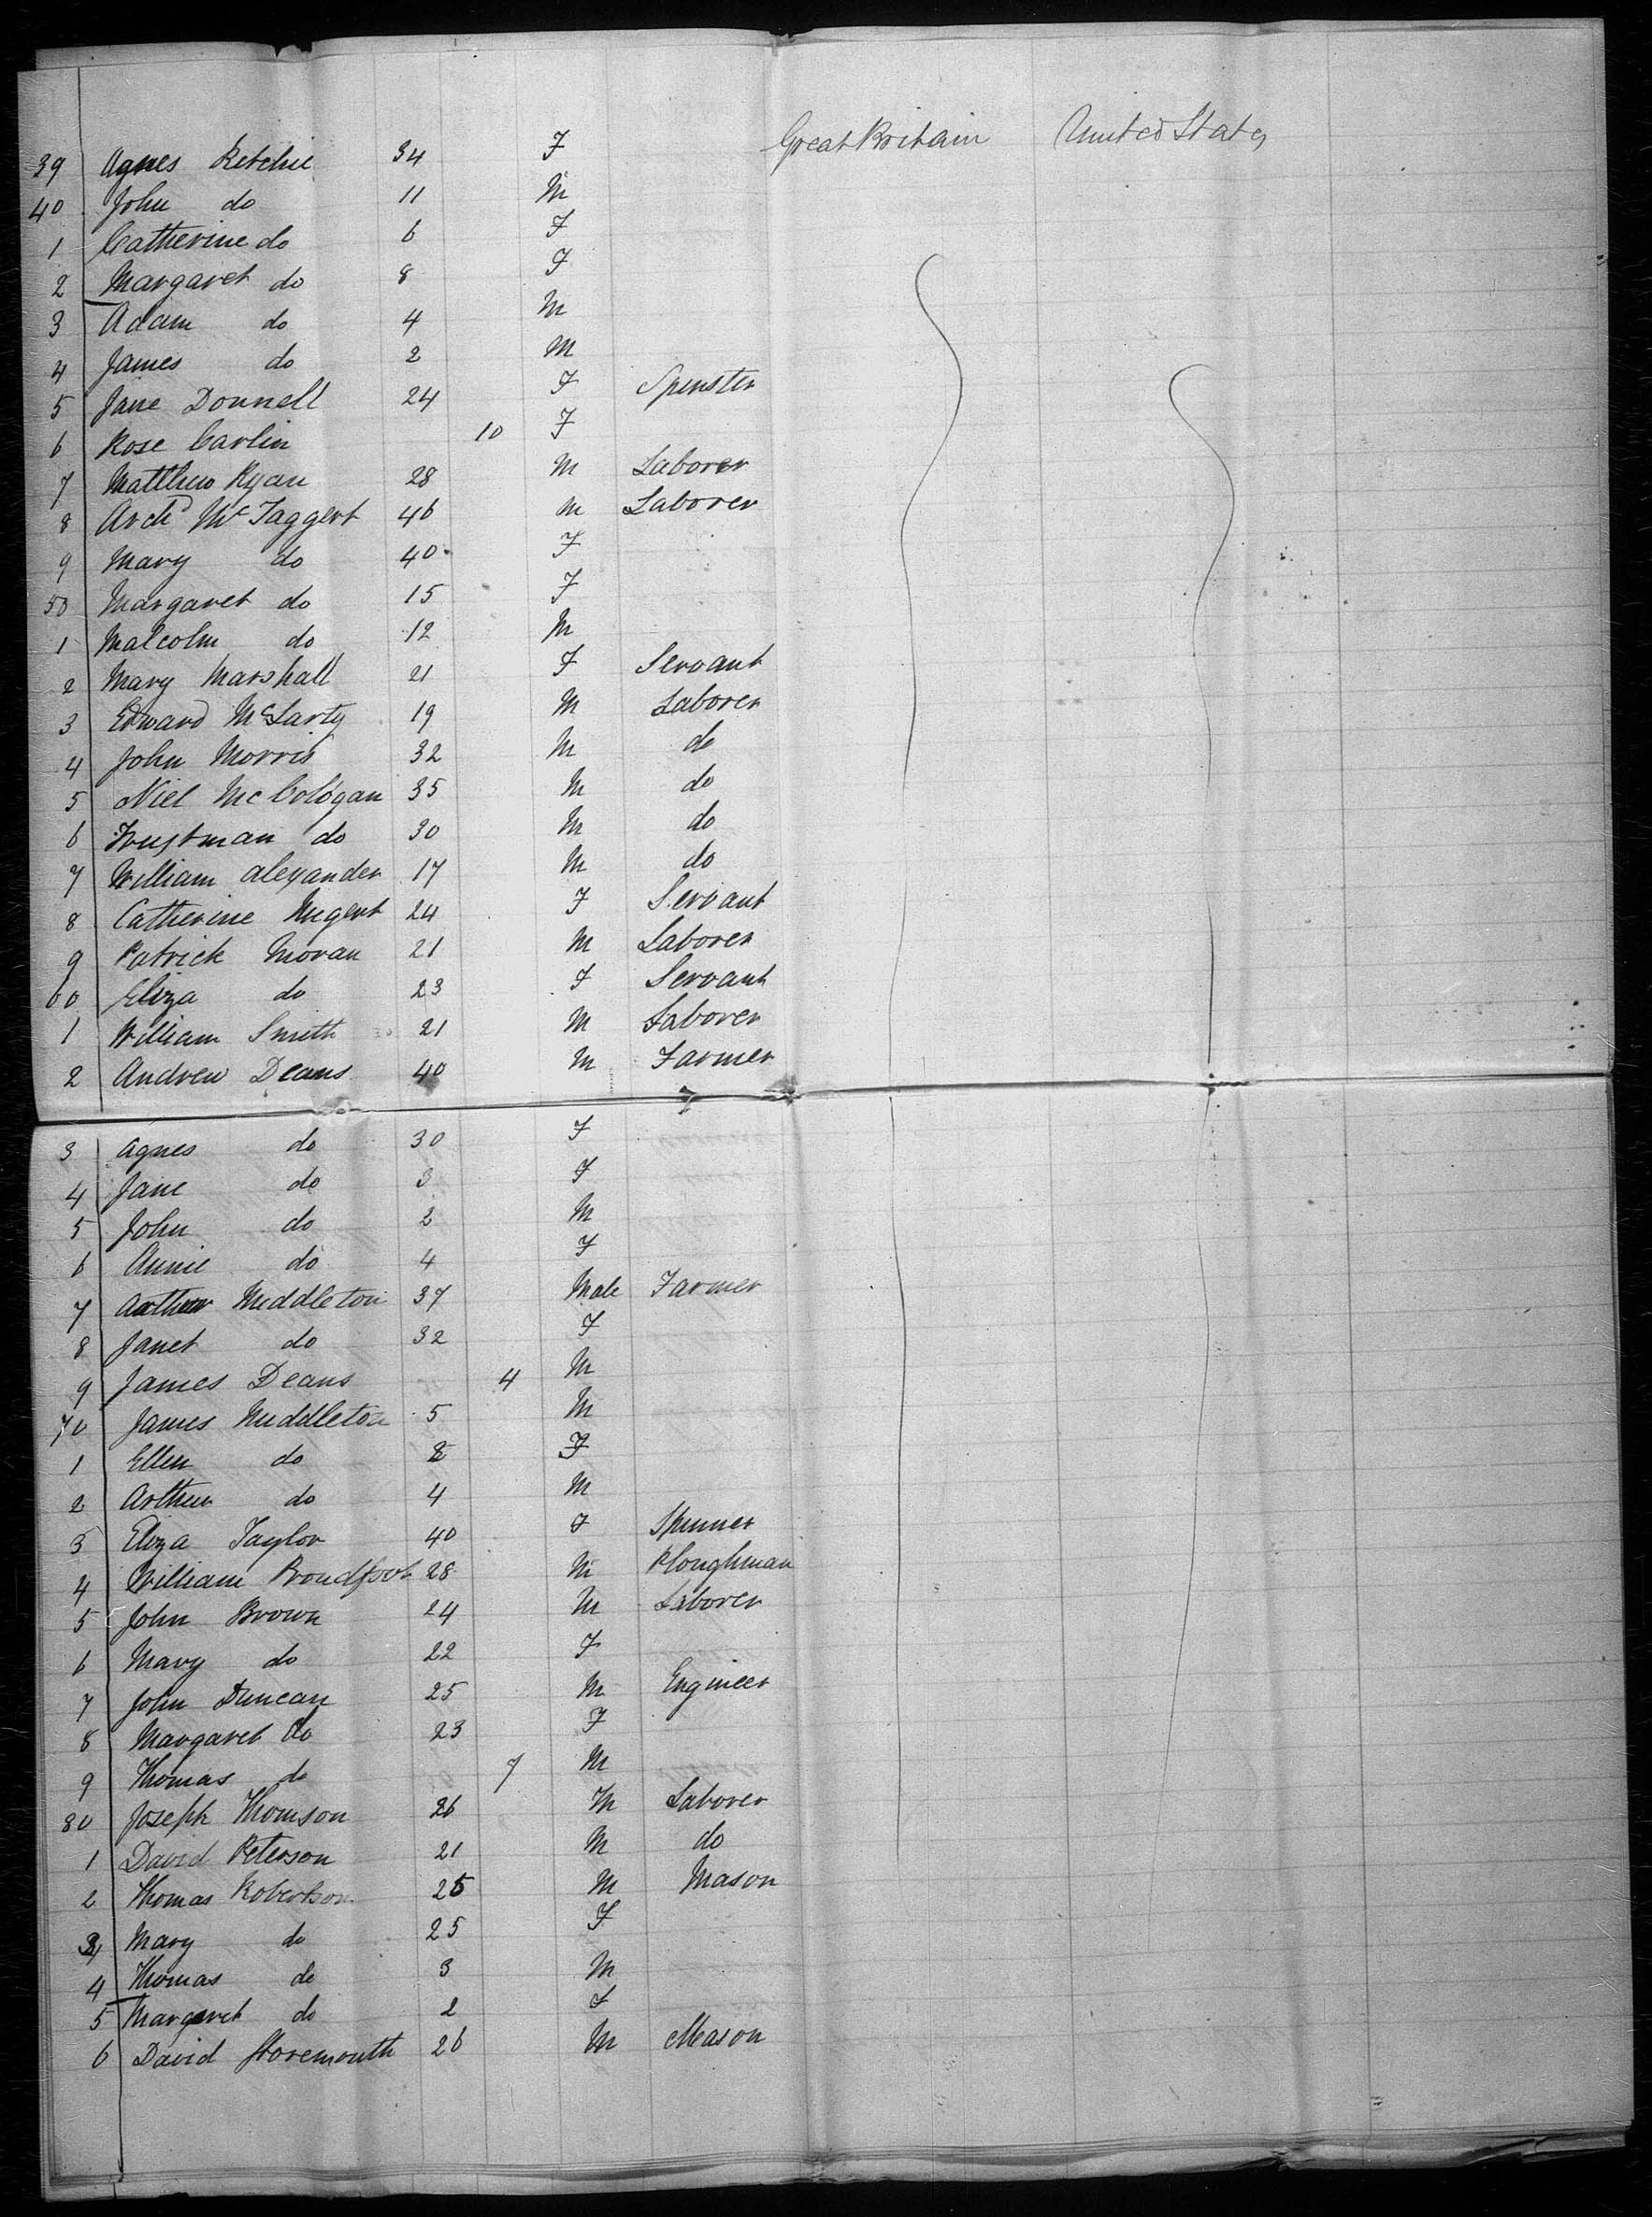 39 Agnes Ritchie 34 F Great Britain United States
40 John do 11 M
1 Catherine do 6 F
2 Margaret do 8 F
3 Adam do 4 M
4 James do 2 M
5 Jane Donnell 24 F Spinster
6 Rose Carlin 10 F
7 Matthew Ryan 28 M Laborer
8 Archd McTaggert 46 M Laborer
9 Mary do 40 F
50 Margaret do 15 F
1 Malcolm do 12 M
2 Mary Marshall 21 F Servant
3 Edward McLarty 19 M Laborer
4 John Morris 32 M do
5 Niel McCologan 35 M do
6 do 30 M do
7 William Alexander 17 M do
8 Catherine Nugent 24 F Servant
9 Patrick Moran 21 M Laborer
60 Eliza do 23 F Servant
1 William Smith 21 M Laborer
2 Andrew Deans 40 M Farmer
3 Agnes do 30 F
4 Jane do 3 F
5 John do 2 M
6 Annie do 4 F
7 Arthur Middleton 37 Male Farmer
8 Janet do 32 F
9 James Deans 4 M
70 James Middleton 5 M
1 Ellen do F
2 Arthur do 4 M
3 Eliza Taylor 40 F Spinner
4 William Proudfoot 28 M Ploughman
5 John Brown 24 M Laborer
6 Mary do 22 F
7 John Duncan 25 M Engineer
8 Margaret do 23 F
9 Thomas do 7 M
80 Joseph Thomson 26 M Laborer
1 David Peterson 21 M do
2 Thomas Robertson 25 M Mason
3 Mary do 25 F
4 Thomas do 3 M
5 Margaret do 2 F
6 David Storemouth 26 M Mason